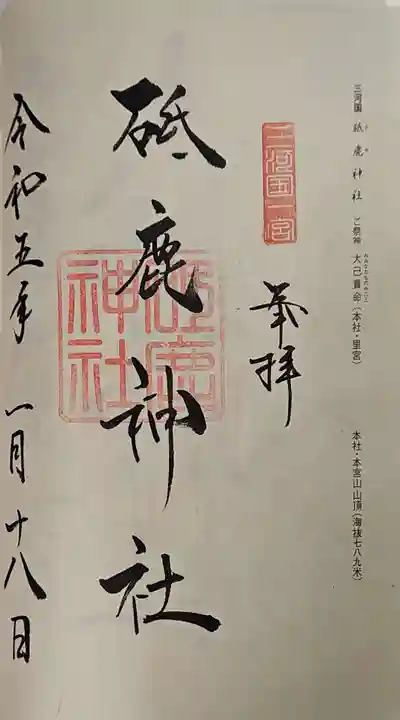 三河国 砥鹿神社 ご祭神 大己貴命(本社・里宮)
本社・本宮山山頂(海抜七八九米)
三河国一宮
奉拝
砥鹿神社
砥鹿神社
令和五年 一月十八日